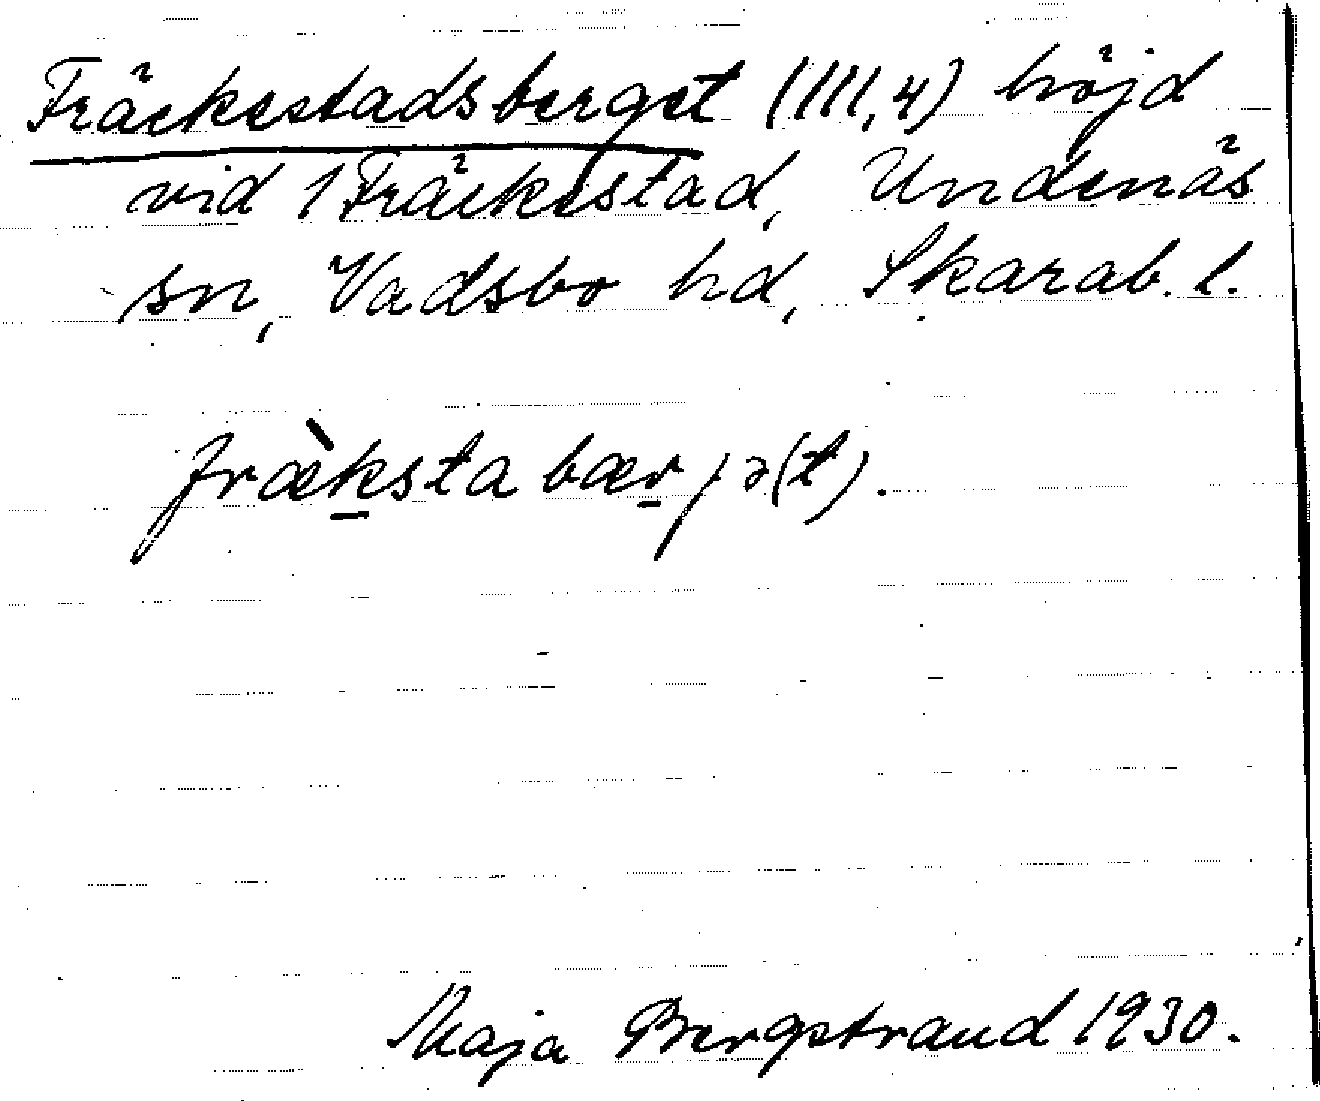 Fräckestadsberget (III,4) höjd
vid 1 Fräckestad, Undenäs
sn, Vadsbo hd, Skarab. l.
fræ̀ksta bærjə(t).
Maja Bergstrand 1930.